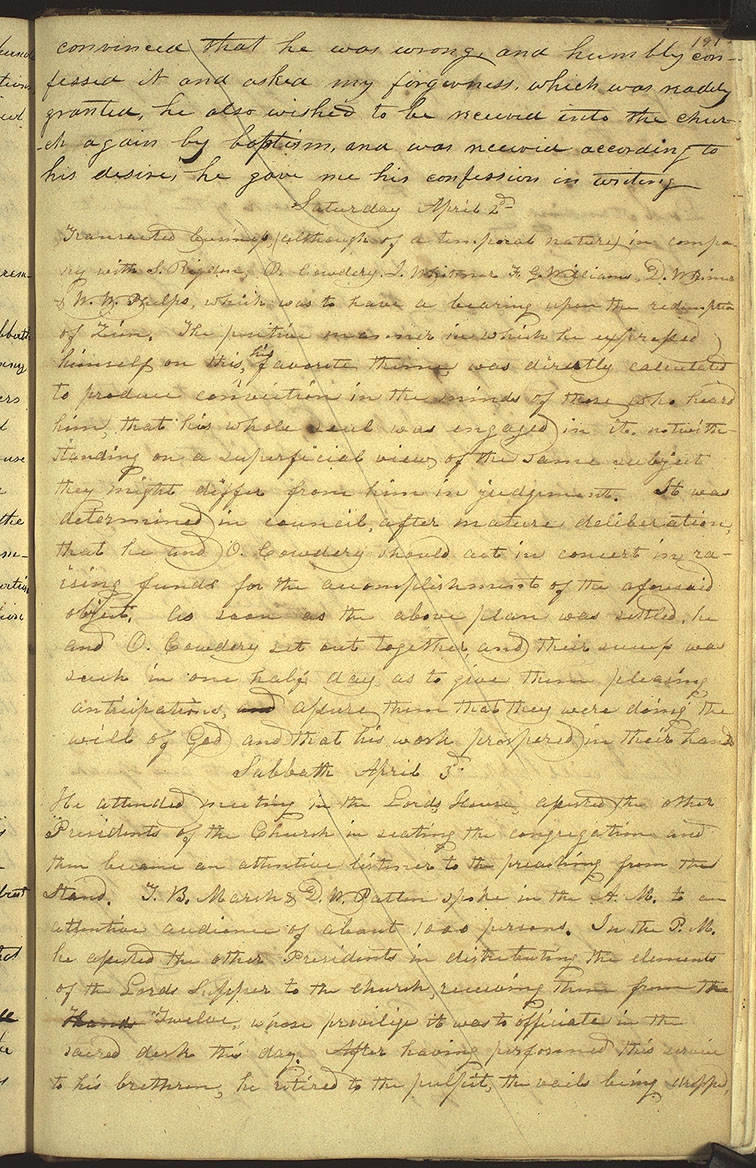 191
convinced that he was wrong, and humbly con-
fessed it and asked my forgivness, which was readily
granted, he also wished to be received into the chur-
-ch again by baptism, and was receivd according to
his desire, he gave me his confession in writing
Saturday April 2d
Transacted business (although of a temporal nature) in compa-
ny with S. Rigdon, O. Cowdery, J. Whitmer F. G. Williams, D. Whitmer
& W. W. Phelps, which was to have a bearing upon the redemption
of Zion. The positive manner in which he expressed
himself on this, his favorite theme was directly calculated
to produce conviction in the minds of those who heard
him, that his whole soul was engaged in it, notwith-
standing on a superficial view of the same subject
they might differ from him in judgement. It was
determined in council, after mature deliberation,
that he and O. Cowdery should act in concert in ra-
ising funds for the accomplishment of the aforesaid
object. As soon as the above plan was settled, he
and O. Cowdery set out together, and their success was
such in one half day, as to give them pleasing
anticipations, and assure them that they were doing the
will of God and that his work prospered in their hands
Sabbath April 3d
He attended meeting in the Lords House, assisted the other
Presidents of the Church in seating the congregation and
then became an attentive listener to the preaching from the
Stand. T. B. Marsh & D. W. Patten spoke in the A. M. to an
attentive audience of about 1000 persons. In the P. M.
he assisted the other Presidents in distributing the elements
of the Lords Supper to the church, receiving them from the
Hands Twelve, whose privilige it was to officiate in the
sacred desk this day. After having performed this service
to his brethren, he retired to the pulpit, the vails being dropped,